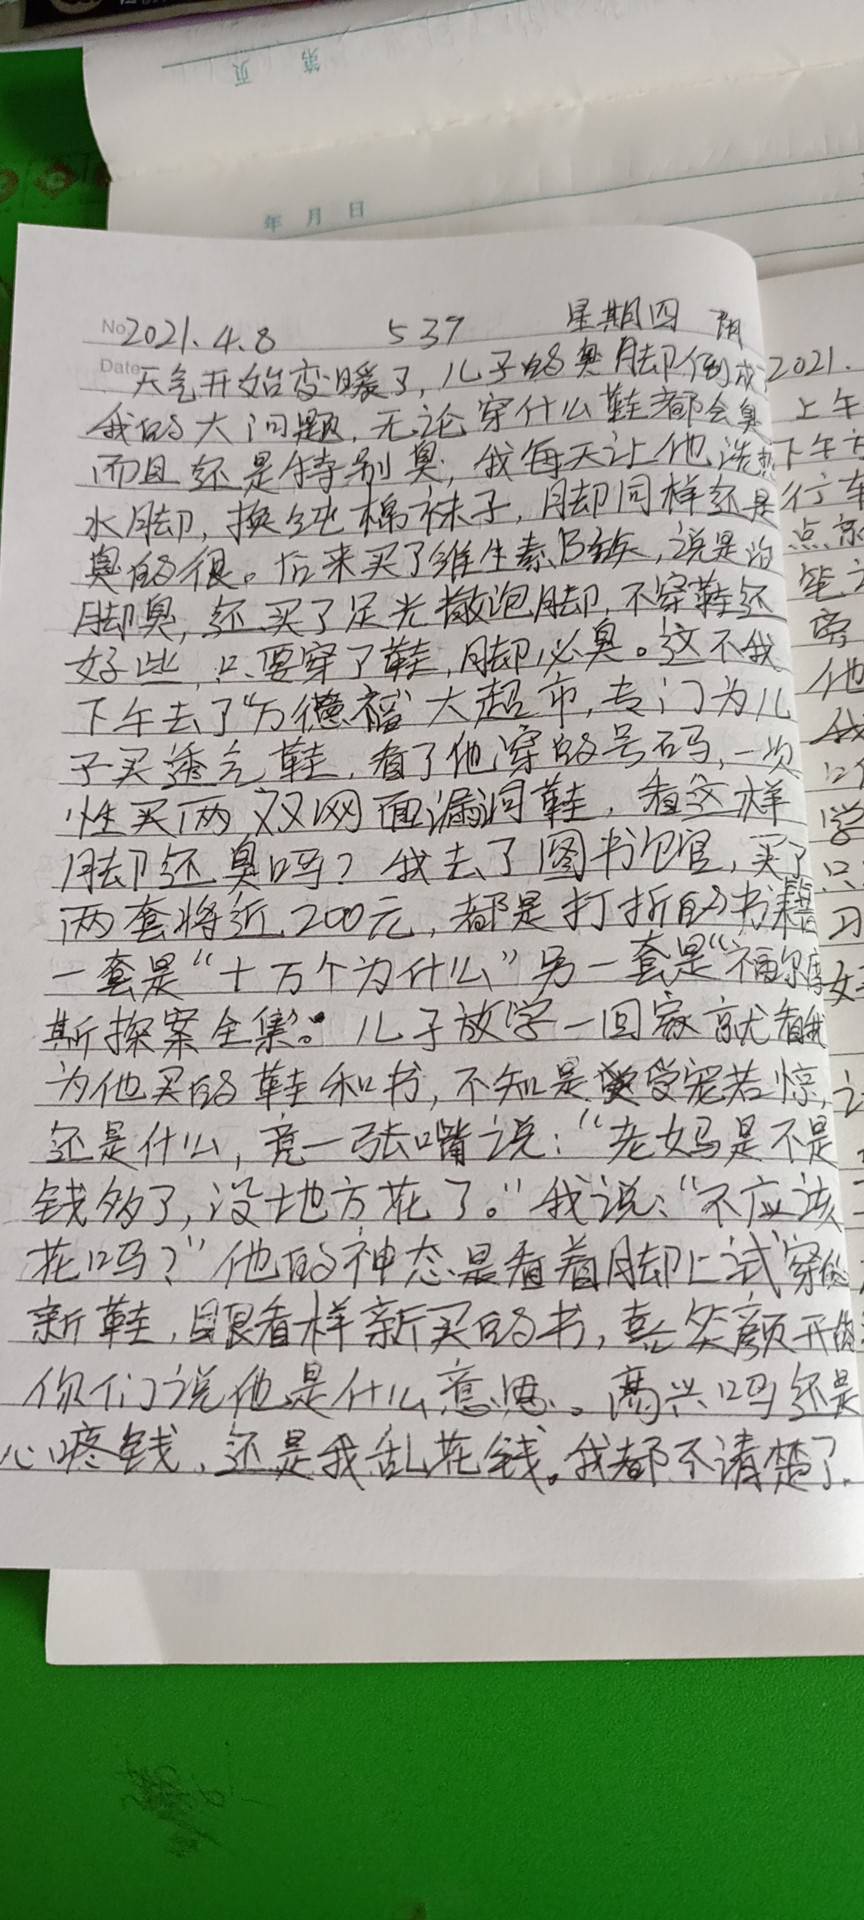 第 页
年 月 日
No. 2021.4.8 537 星期四 阴
Date 天气开始变暖了,儿子的臭脚倒成
我的大问题,无论穿什么鞋都会臭
而且还是特别臭,我每天让他洗热
水脚,换纯棉袜子,脚同样还是
臭的很。后来买了维生素B族,说是治
脚臭,还买了足光散泡脚,不穿鞋还
好些,只要穿了鞋,脚必臭。这不我
下午去了“万德福”大超市,专门为儿
子买透气鞋,看了他穿的号码,一次
性买两双网面漏洞鞋,看这样
脚还臭吗?我去了图书馆,买了
两套将近200元,都是打折的书籍
一套是“十万个为什么”另一套是“福尔摩
斯探案全集”。儿子放学一回家就看我
为他买的鞋和书,不知是受宠若惊,
还是什么,竟一张嘴说:“老妈是不是
钱多了,没地方花了。”我说:“不应该
花吗?”他的神态是看着脚上试穿的
新鞋,眼看样新买的书,喜笑颜开的
你们说他是什么意思。高兴吗还是
心疼钱,还是我乱花钱。我都不请楚了.
2021.
上午
下午
行车
点
旁
他
我
学
只
习